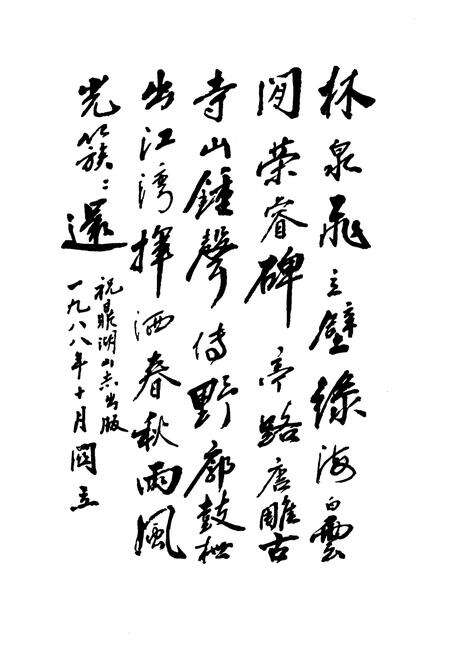 林泉飛立壁綠海白雲
間榮睿碑亭路唐雕古
寺山鍾聲傳野廓鼓枻
出江湾揮洒春秋雨風
光簇々還
祝鼎湖山志出版
一九八八年十月